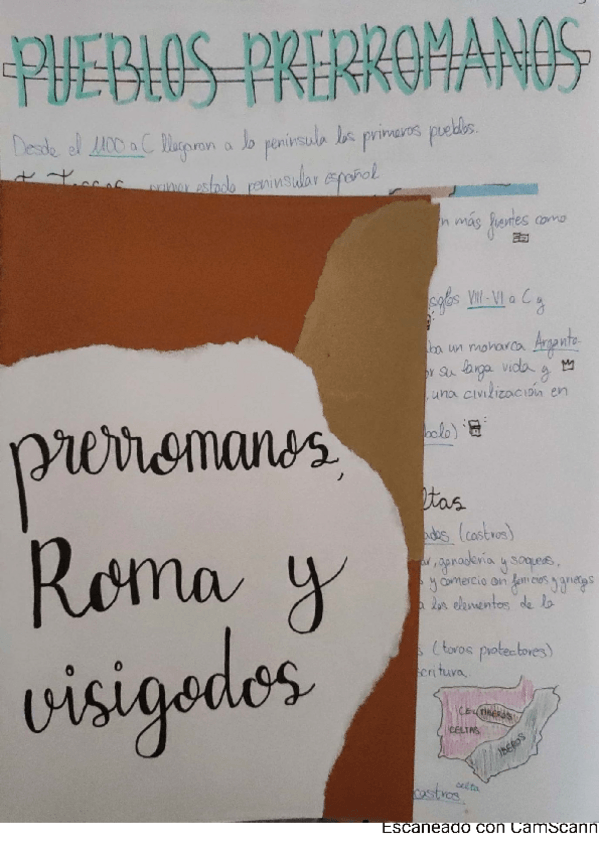 PUEBLOS PRERROMANOS
Desde el 1100 a C llegaron a la península los primeros pueblos.
primer estado peninsular español
n más fuentes como
siglos VIII-VI a C y
ba un monarca Arganto-
or su larga vida y
una civilización en
ltas
ados (castros)
ar, ganadería y saqueos,
y comercio con fenicios y griegos
a los elementos de la
s (toros protectores)
critura
CELTÍBEROS
CELTAS
ÍBEROS
celta
castros
prerromanos,
Roma y
visigodos
Escaneado con CamScann